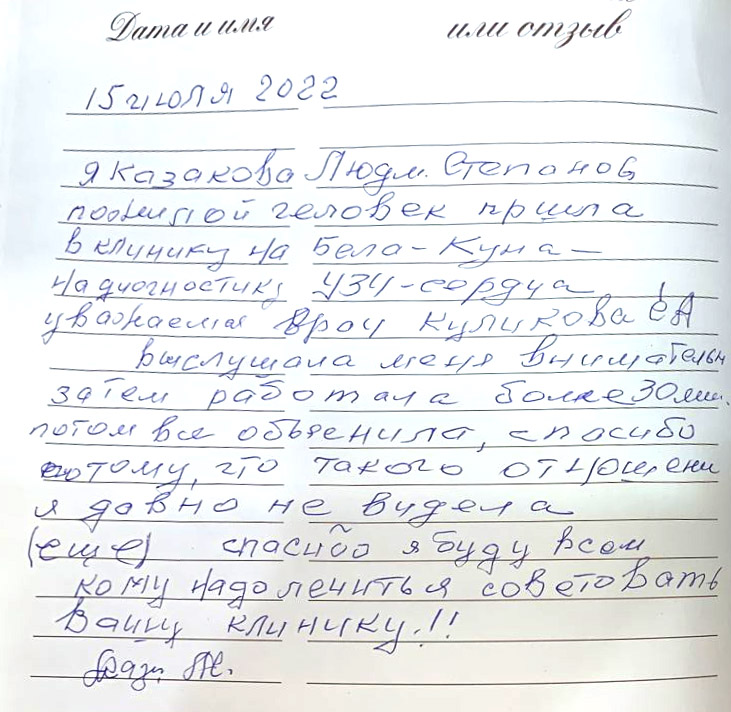 Дата и имя или отзыв
15 июля 2022
я Казакова Людм. Степанов
пожилой человек пршла
в клинику на Бела-Куна -
на диогностику УЗИ-сердца
уважаемая врач Куликова ЕА
выслушала меня внимательн
затем работала более 30 мин.
потом все объенила, спасибо
потому, что такого отношени
я давно не видела
(еще) спасибо я буду всем
кому надо лечиться советовать
Вашу клинику!!